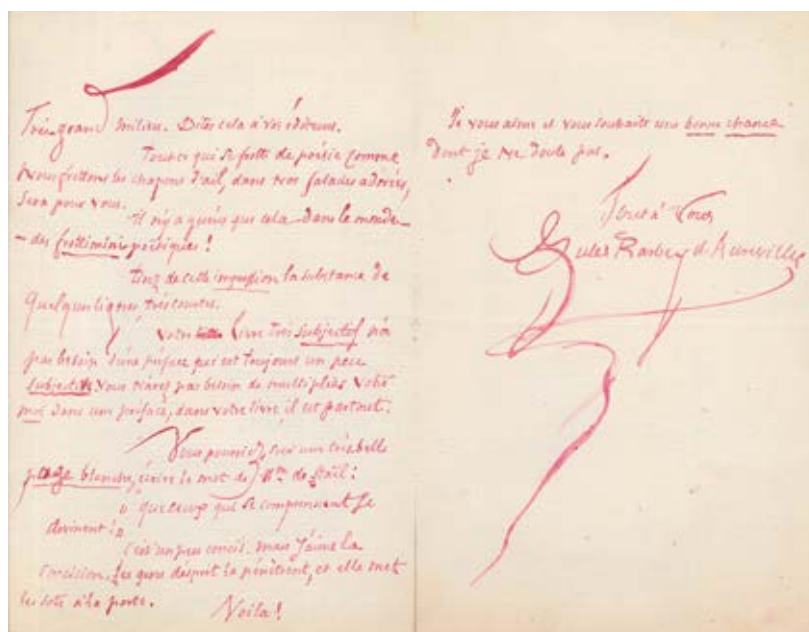 Très-grand milieu. Dites cela à vos éditeurs.
Tout ce qui se frotte de poésie comme
nous frottons les chapons d'ail, dans nos salades adorées,
sera pour vous.
Il n'y a guères que cela dans le monde –
– des frottiminis poétiques !
tirez de cette ingestion la substance de
quelques lignes très courtes.
Votre livre très subjectif n'a
pas besoin d'une préface qui est toujours un peu
subjective. Vous n'avez pas besoin de multiplier votre
moi dans une préface, dans votre livre, il est partout.
Vous pourriez, sur une très belle
page blanche, écrire le mot de Mme de Staël :
« que ceux qui se comprennent se
devinent ! »
C'est un peu concis. mais j'aime la
Concision. Les gens d'esprit la pénètrent, et elle met
les sots à la porte.
Voilà !
Je vous aime et vous souhaite une bonne chance
dont je ne doute pas.
Tout à Vous
Jules Barbey d'Aurevilly